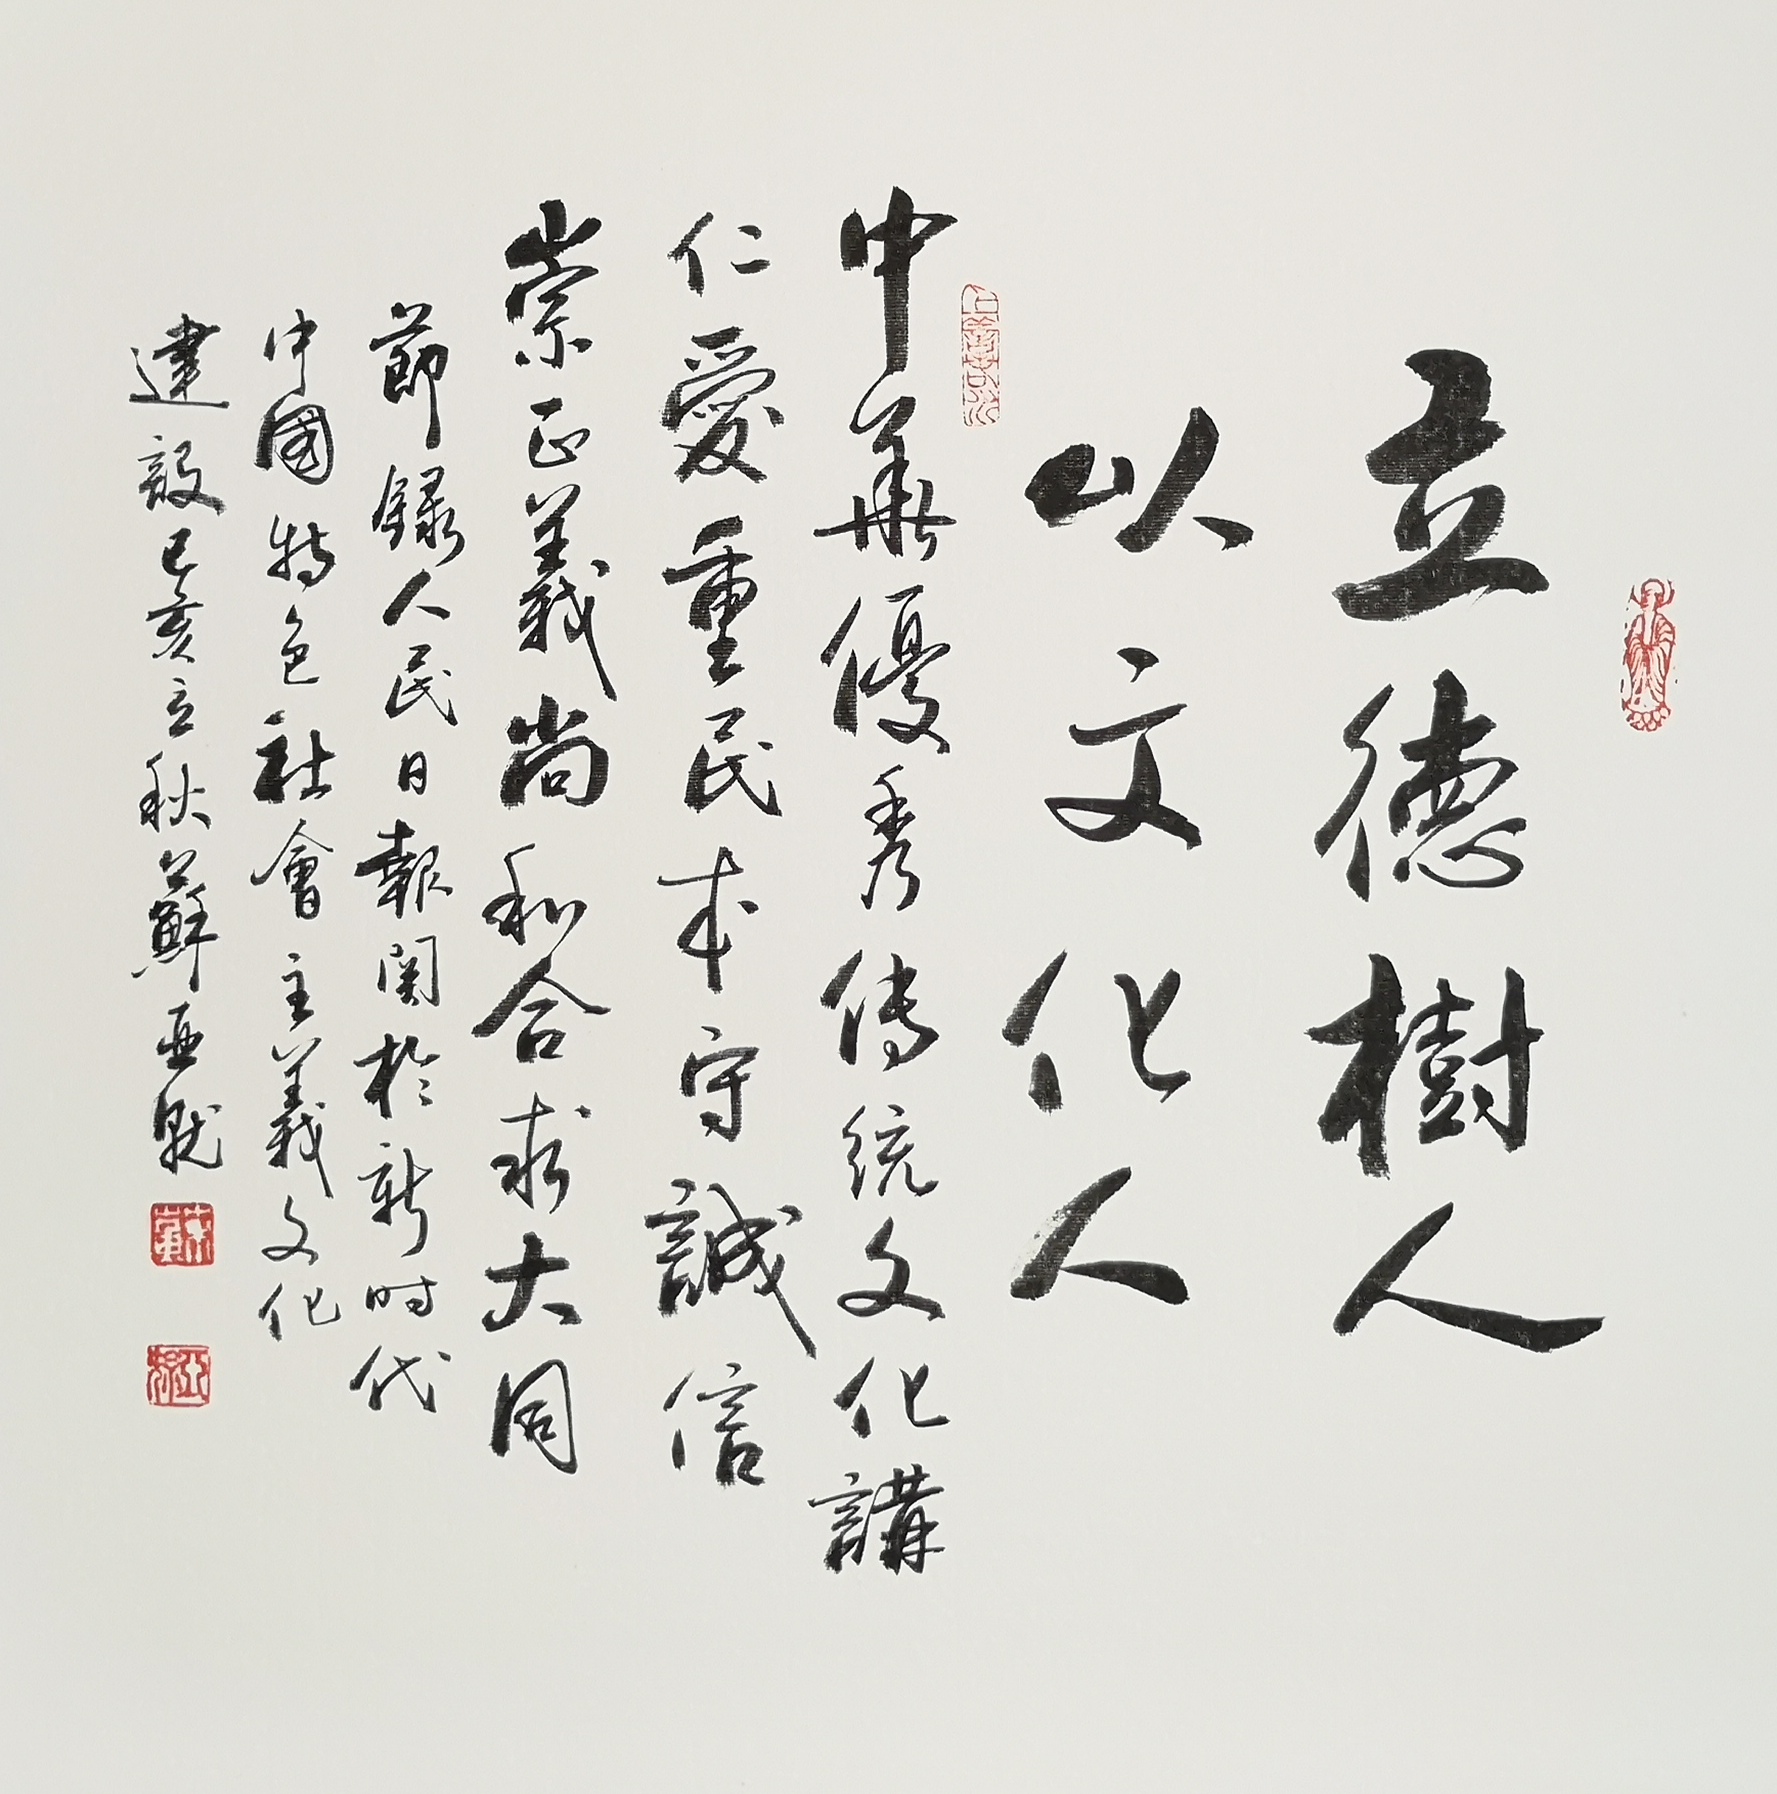 立德樹人
以文化人
中華優秀传統文化講
仁愛重民本守誠信
崇正義尚和合求大同
節録人民日報関於新时代
中國特色社會主義文化
建設己亥立秋蘇亜